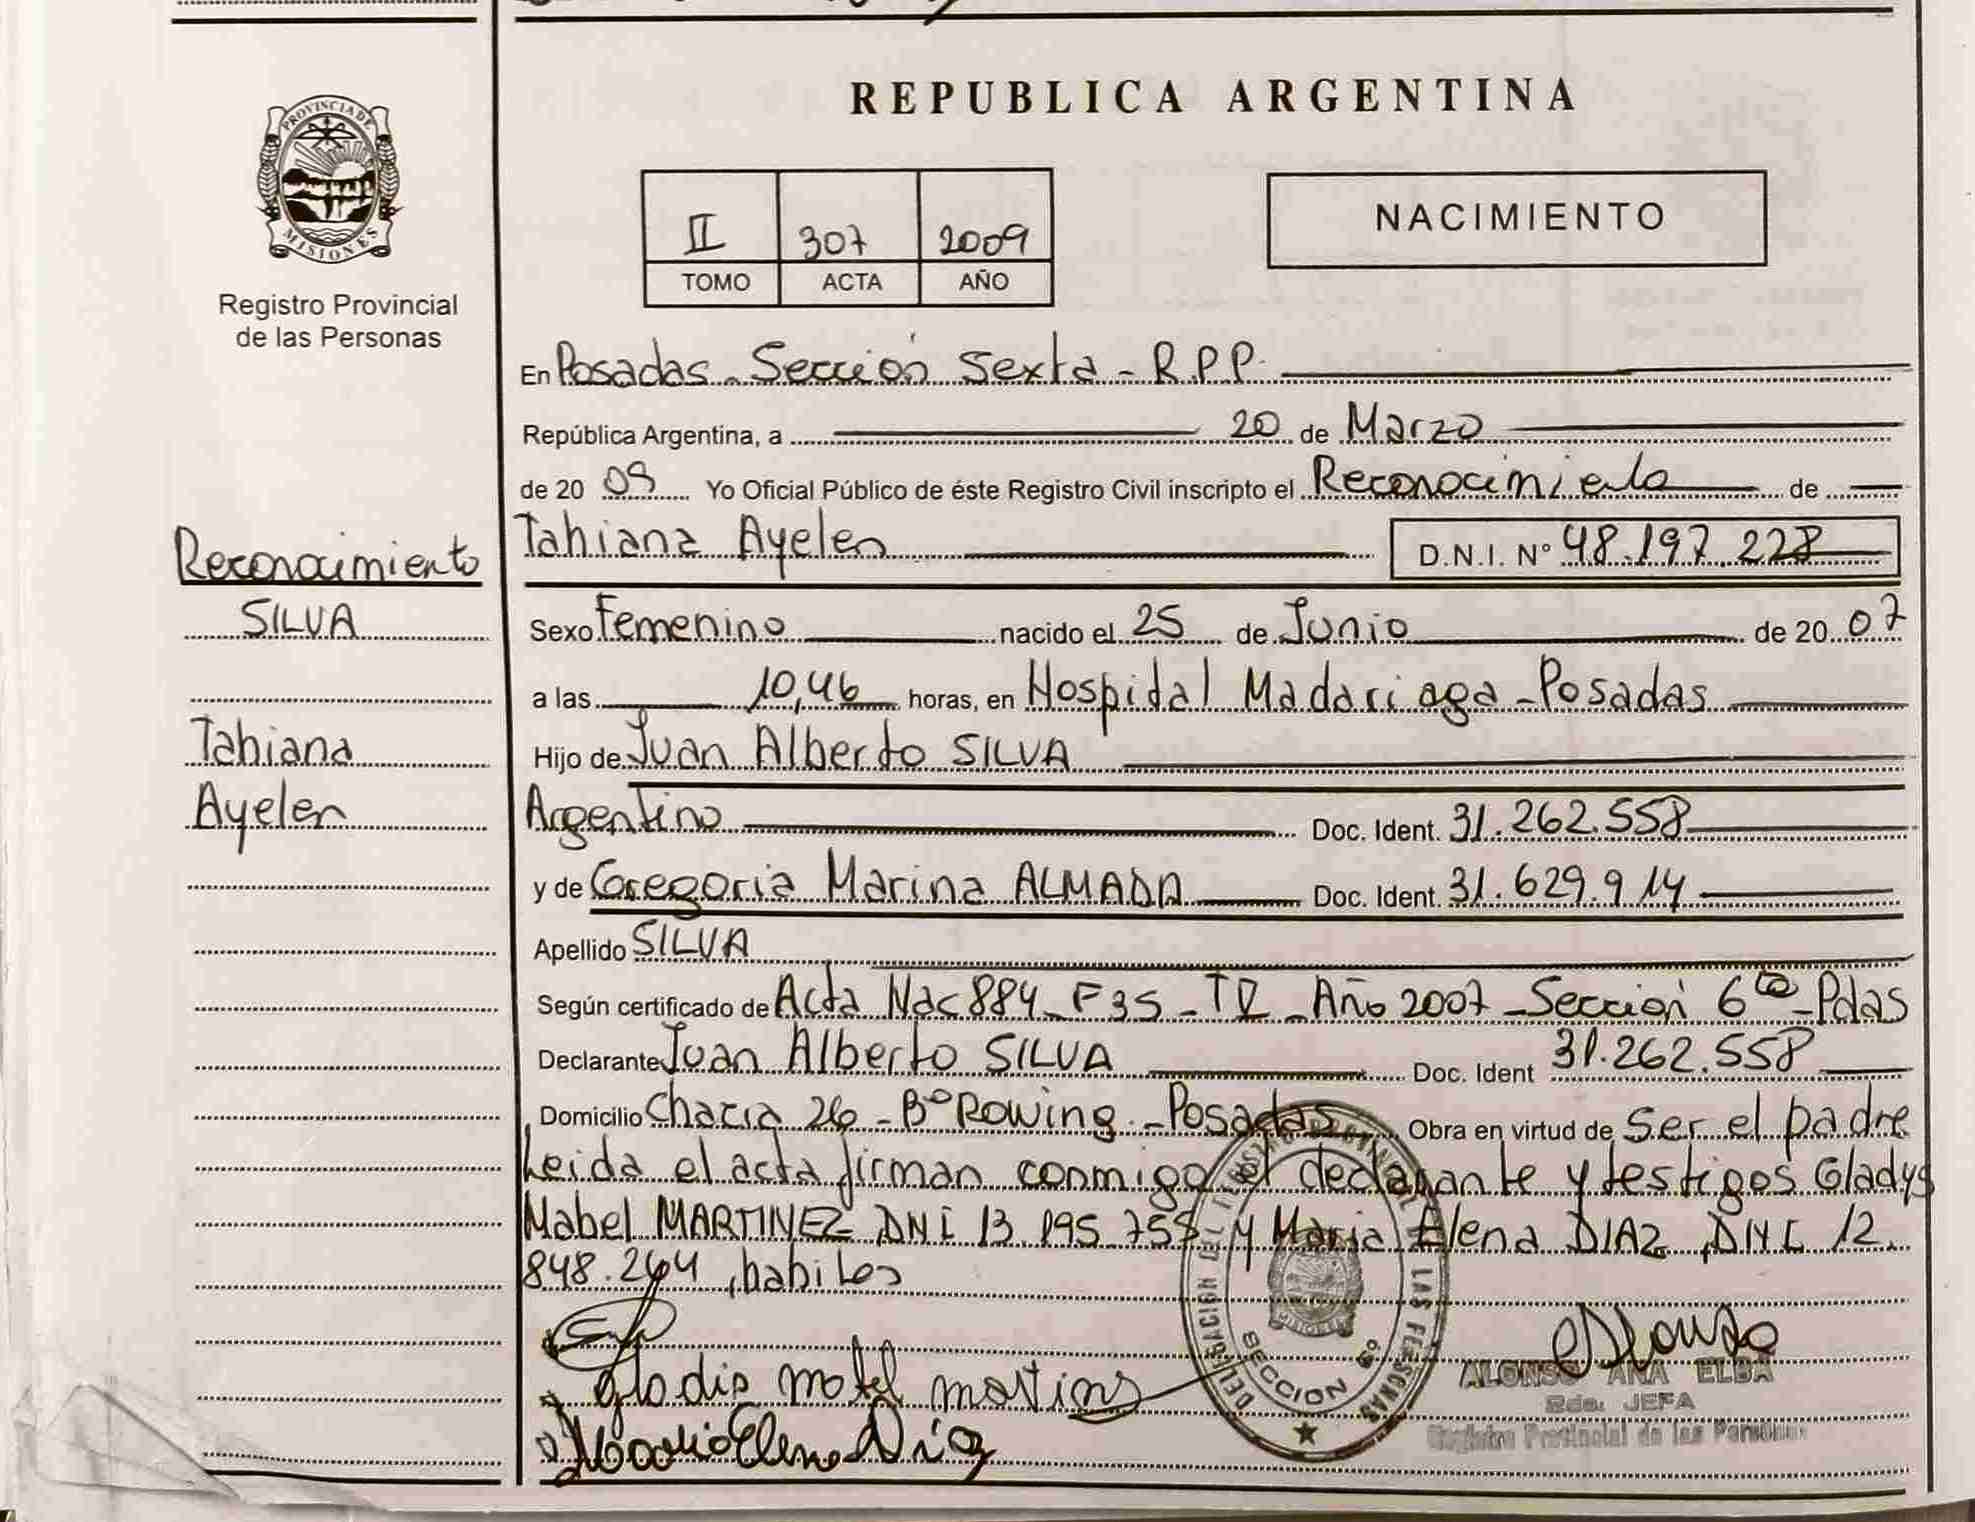 REPUBLICA ARGENTINA
PROVINCIA DE
MISIONES
Registro Provincial
de las Personas
II 307 2009
TOMO ACTA AÑO
NACIMIENTO
En Posadas - Sección Sexta - R.P.P.
República Argentina, a 20 de Marzo
de 20 09 Yo Oficial Público de éste Registro Civil inscripto el Reconocimiento de
Tahiana Ayelen D.N.I. N° 48.197.228
Reconocimiento
SILVA
Tahiana
Ayelen
Sexo Femenino nacido el 25 de Junio de 20 07
a las 10,46 horas, en Hospital Madariaga - Posadas
Hijo de Juan Alberto SILVA
Argentino Doc. Ident. 31.262.558
y de Gregoria Marina ALMADA Doc. Ident. 31.629.914
Apellido SILVA
Según certificado de Acta Nac 884 - F 35 - T V - Año 2007 - Sección 6ta - Pdas
Declarante Juan Alberto SILVA Doc. Ident 31.262.558
Domicilio Chacra 26 - B° Rowing - Posadas Obra en virtud de ser el padre
Leida el acta firman conmigo el declarante y testigos Gladys
Mabel MARTINEZ DNI 13.195.758 y Maria Elena DIAZ, DNI 12.
848.264, habiles
gladis mabel martines
Maria Elena Díaz
SECCION 6°
DELEGACION DEL REGISTRO PROVINCIAL DE LAS PERSONAS
Alonso
ALONSO ANA ELBA
2da. JEFA
Registro Provincial de las Personas